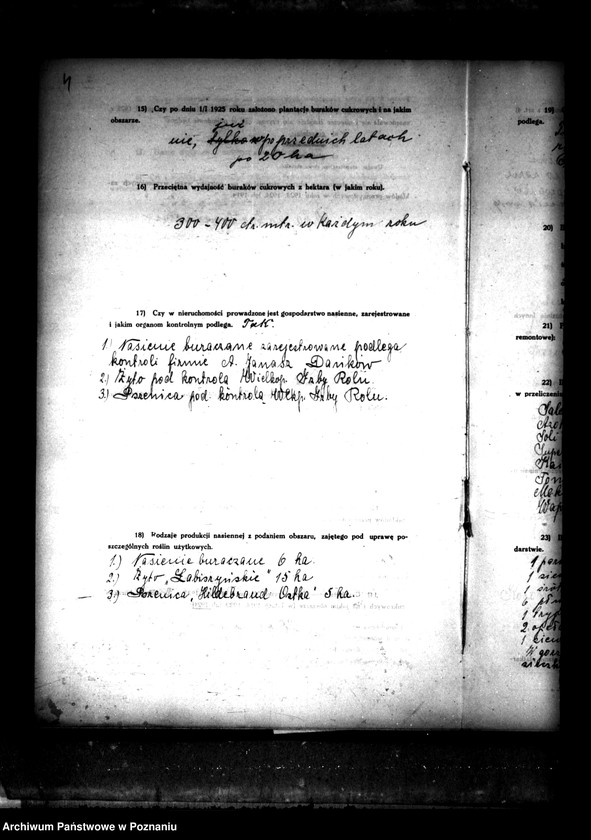 4
15) Czy po dniu 1/I 1925 roku założono plantacje buraków cukrowych i na jakim
obszarze.
już
nie, tylko w poprzednich latach
po 20 ha
16) Przeciętna wydajność buraków cukrowych z hektara (w jakim roku).
300-400 ctr. mtr. w każdym roku
17) Czy w nieruchomości prowadzone jest gospodarstwo nasienne, zarejestrowane
i jakim organom kontrolnym podlega. Tak.
1) Nasienie buraczane zarejestrowane podlega
kontroli firmie A. Janasz Dańków
2.) Żyto pod kontrolą Wielkop. Izby Roln.
3.) Pszenica pod. kontrolą Wlkp. Izby Roln.
18) Rodzaje produkcji nasiennej z podaniem obszaru, zajętego pod uprawę po-
szczególnych roślin użytkowych.
1.) Nasienie buraczane 6 ha.
2.) Żyto „Łabiszyńskie" 15 ha
3.) Pszenica „Hildebrand Ostka" 5 ha.
19)
podlega.
20)
21)
remontowe):
22)
w przeliczeniu
23)
darstwie.
Archiwum Państwowe w Poznaniu